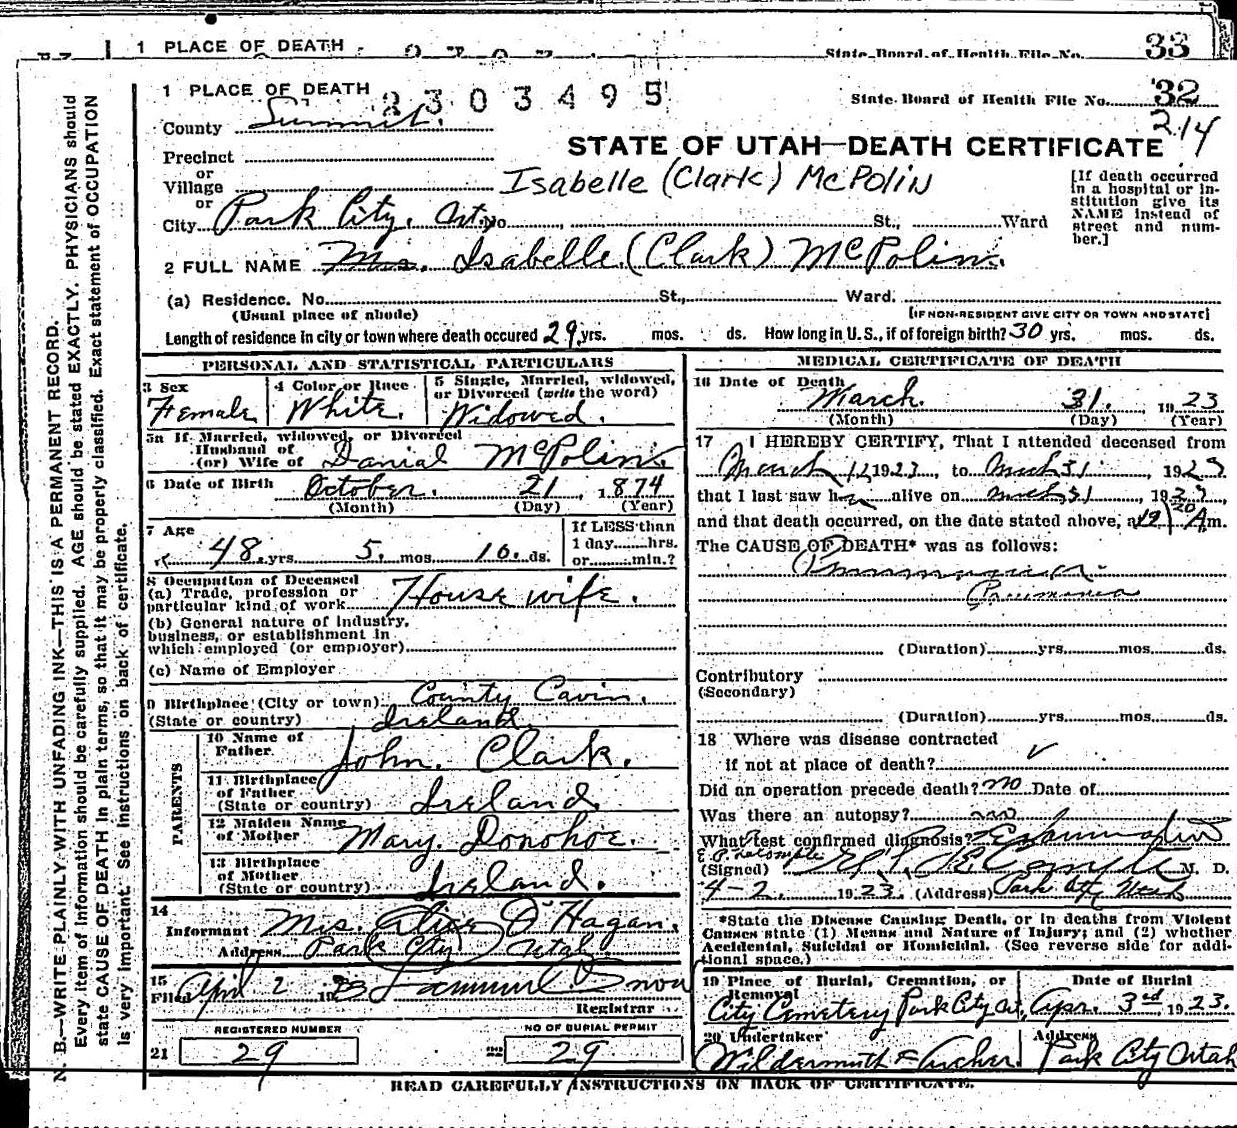 1 PLACE OF DEATH
State Board of Health File No. 33
1 PLACE OF DEATH 2303495
State Board of Health File No. 32
214
County Summit.
STATE OF UTAH—DEATH CERTIFICATE
Precinct
or
Village
Isabelle (Clark) McPolin
[If death occurred in a hospital or institution give its NAME instead of street and number.]
or
City Park City, Ut. No. St., Ward
2 FULL NAME Mrs. Isabelle (Clark) McPolin.
(a) Residence. No. St., Ward.
(Usual place of abode) [IF NON-RESIDENT GIVE CITY OR TOWN AND STATE]
Length of residence in city or town where death occured 29 yrs. mos. ds. How long in U.S., if of foreign birth? 30 yrs. mos. ds.
PERSONAL AND STATISTICAL PARTICULARS
3 Sex Female
4 Color or Race White.
5 Single, Married, widowed, or Divorced (write the word) Widowed.
5a If Married, widowed, or Divorced
Husband of
(or) Wife of Danial McPolin.
6 Date of Birth October. 21, 1874
(Month) (Day) (Year)
7 Age
48. yrs. 5. mos. 10. ds.
If LESS than
1 day......hrs.
or......min.?
8 Occupation of Deceased
(a) Trade, profession or
particular kind of work House wife.
(b) General nature of Industry,
business, or establishment in
which employed (or employer)
(c) Name of Employer
9 Birthplace (City or town) County Cavin.
(State or country) Ireland.
PARENTS
10 Name of Father John. Clark.
11 Birthplace of Father
(State or country) Ireland.
12 Maiden Name of Mother Mary. Donohoe.
13 Birthplace of Mother
(State or country) Ireland.
14
Informant Mrs. Alice O'Hagan.
Address Park City, Utah.
15
Filed April 2 1923 Snow
Registrar
REGISTERED NUMBER
21 29
NO OF BURIAL PERMIT
22 29
MEDICAL CERTIFICATE OF DEATH
16 Date of Death
March. 31. 1923
(Month) (Day) (Year)
17 I HEREBY CERTIFY, That I attended deceased from
March 12 1923, to Mch 31, 1923
that I last saw h alive on Mch 31, 1923
and that death occurred, on the date stated above, at A m.
The CAUSE OF DEATH* was as follows:
Pneumonia
(Duration) yrs. mos. ds.
Contributory
(Secondary)
(Duration) yrs. mos. ds.
18 Where was disease contracted
if not at place of death? ✓
Did an operation precede death? no Date of
Was there an autopsy? no
What test confirmed diagnosis? Examination
E. P. LeCompte
(Signed) E. P. LeCompte M. D.
4-2. 1923. (Address) Park City Utah
*State the Disease Causing Death, or in deaths from Violent
Causes state (1) Means and Nature of Injury; and (2) whether
Accidental, Suicidal or Homicidal. (See reverse side for additional space.)
19 Place of Burial, Cremation, or Removal
City Cemetery Park City Ut.
Date of Burial
Apr. 3rd 1923.
20 Undertaker
Wildermuth & Archer.
Address
Park City Utah
READ CAREFULLY INSTRUCTIONS ON BACK OF CERTIFICATE.
N. B.—WRITE PLAINLY WITH UNFADING INK—THIS IS A PERMANENT RECORD.
Every item of information should be carefully supplied. AGE should be stated EXACTLY. PHYSICIANS should
state CAUSE OF DEATH in plain terms, so that it may be properly classified. Exact statement of OCCUPATION
is very important. See instructions on back of certificate.